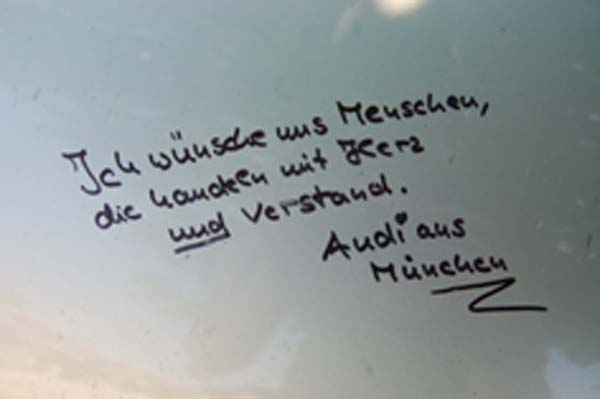 Ich wünsche uns Menschen,
die handeln mit Herz
und Verstand.
Andi aus
München